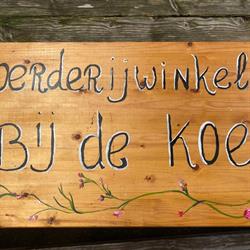 oerderijwinkel
Bij de Koe